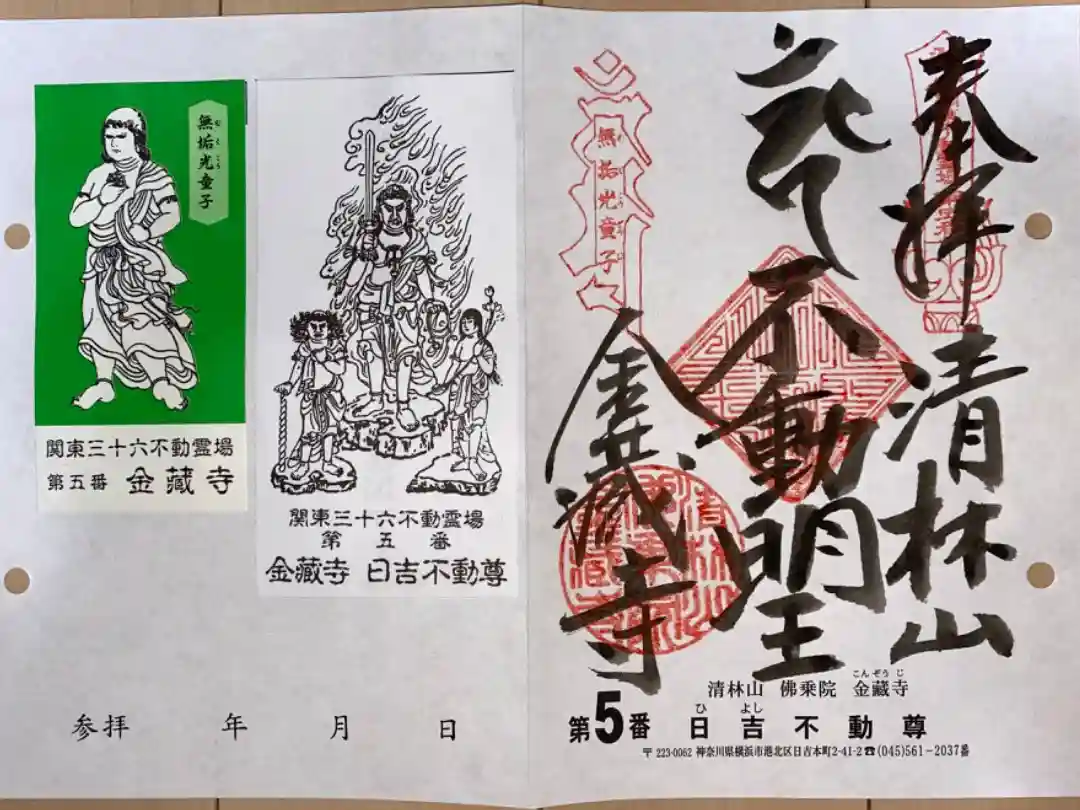 無垢光童子
むくこうどうじ
関東三十六不動霊場
第五番 金藏寺
関東三十六不動霊場
第五番
金藏寺 日吉不動尊
参拝 年 月 日
奉拝 清林山
不動明王
無垢光童子
金藏寺
清林山 佛乗院 金藏寺
こんぞうじ
第5番 日吉不動尊
ひよし
〒223-0062 神奈川県横浜市港北区日吉本町2-41-2☎(045)561-2037番